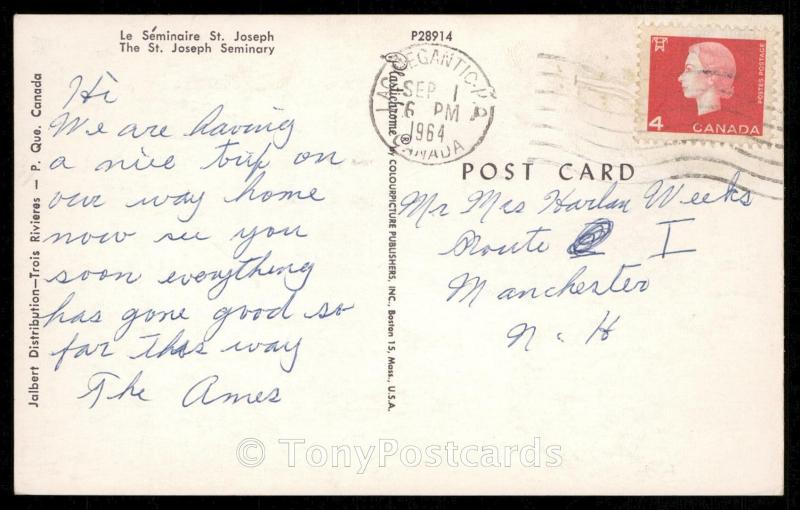 Le Séminaire St. Joseph
The St. Joseph Seminary
P28914
Jalbert Distribution—Trois Rivieres — P. Que. Canada
Hi
We are having
a nice trip on
our way home
now see you
soon everything
has gone good so
far this way
The Ames
Plastichrome ® by COLOURPICTURE PUBLISHERS, INC., Boston 15, Mass., U.S.A.
LAC MEGANTIC P.Q.
SEP 1
6 PM
1964
CANADA
4 CANADA
POSTES POSTAGE
POST CARD
Mr Mrs Harlan Weeks
Route I
Manchester
N. H
© TonyPostcards